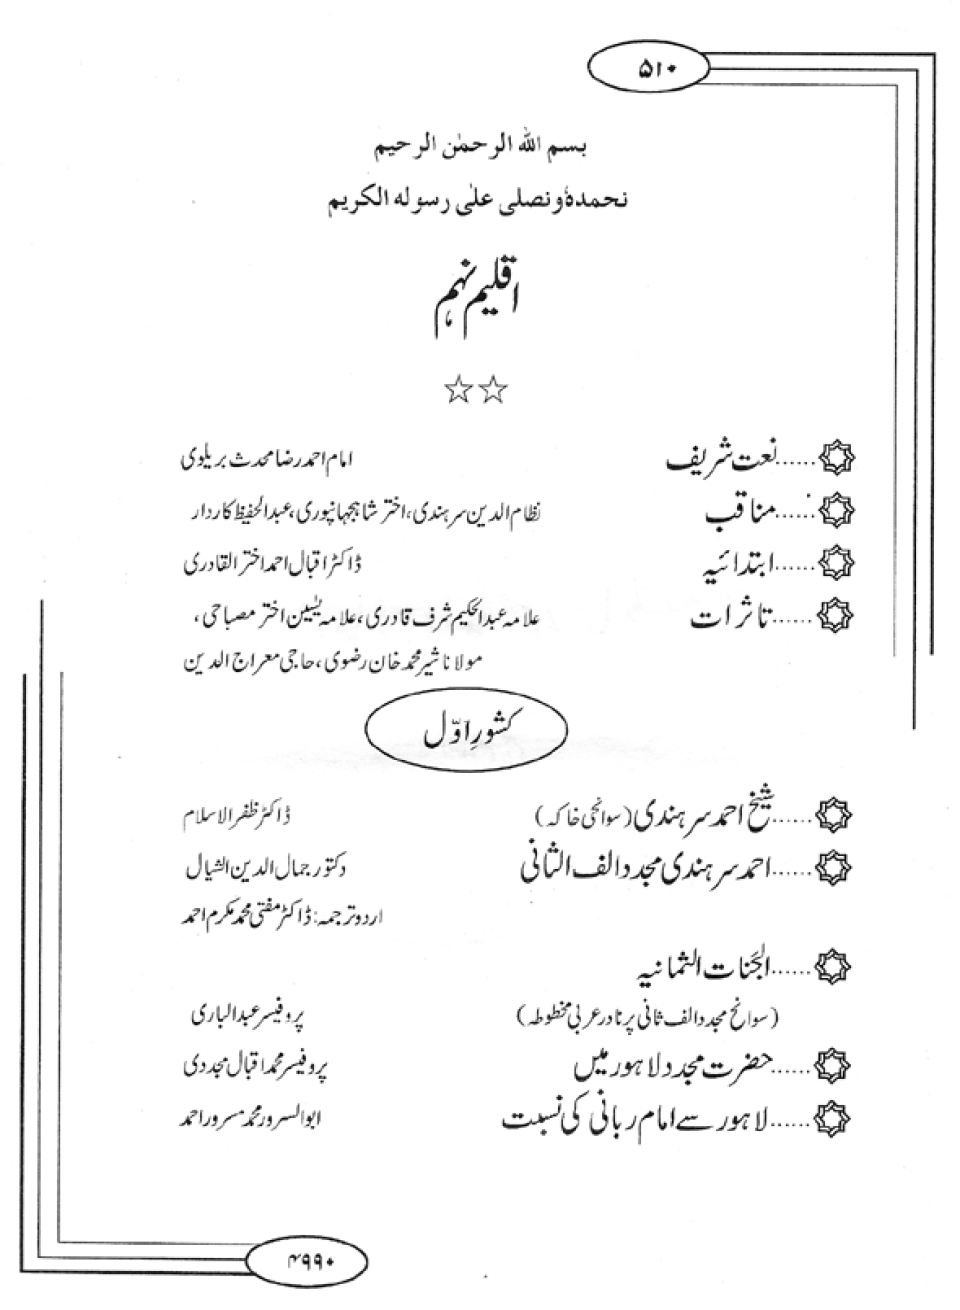 ۵۱۰
بسم الله الرحمٰن الرحیم
نحمدهٗ ونصلی علٰی رسوله الکریم
اقلیم نہم
☆☆
......نعت شریف امام احمد رضا محدث بریلوی
......مناقب نظام الدین سرہندی، اختر شاہجہانپوری، عبدالحفیظ کاردار
......ابتدائیہ ڈاکٹر اقبال احمد اختر القادری
......تاثرات علامہ عبدالحکیم شرف قادری، علامہ یٰسین اختر مصباحی،
مولانا شیر محمد خان رضوی، حاجی معراج الدین
کشورِ اوّل
......شیخ احمد سرہندی (سوانحی خاکہ) ڈاکٹر ظفر الاسلام
......احمد سرہندی مجدد الف الثانی دکتور جمال الدین الشیال
اردو ترجمہ: ڈاکٹر مفتی محمد مکرم احمد
......الجنات الثمانیہ
(سوانح مجدد الف ثانی پر نادر عربی مخطوطہ) پروفیسر عبدالباری
......حضرت مجدد لاہور میں پروفیسر محمد اقبال مجددی
......لاہور سے امام ربانی کی نسبت ابوالسرور محمد مسرور احمد
۴۹۹۰